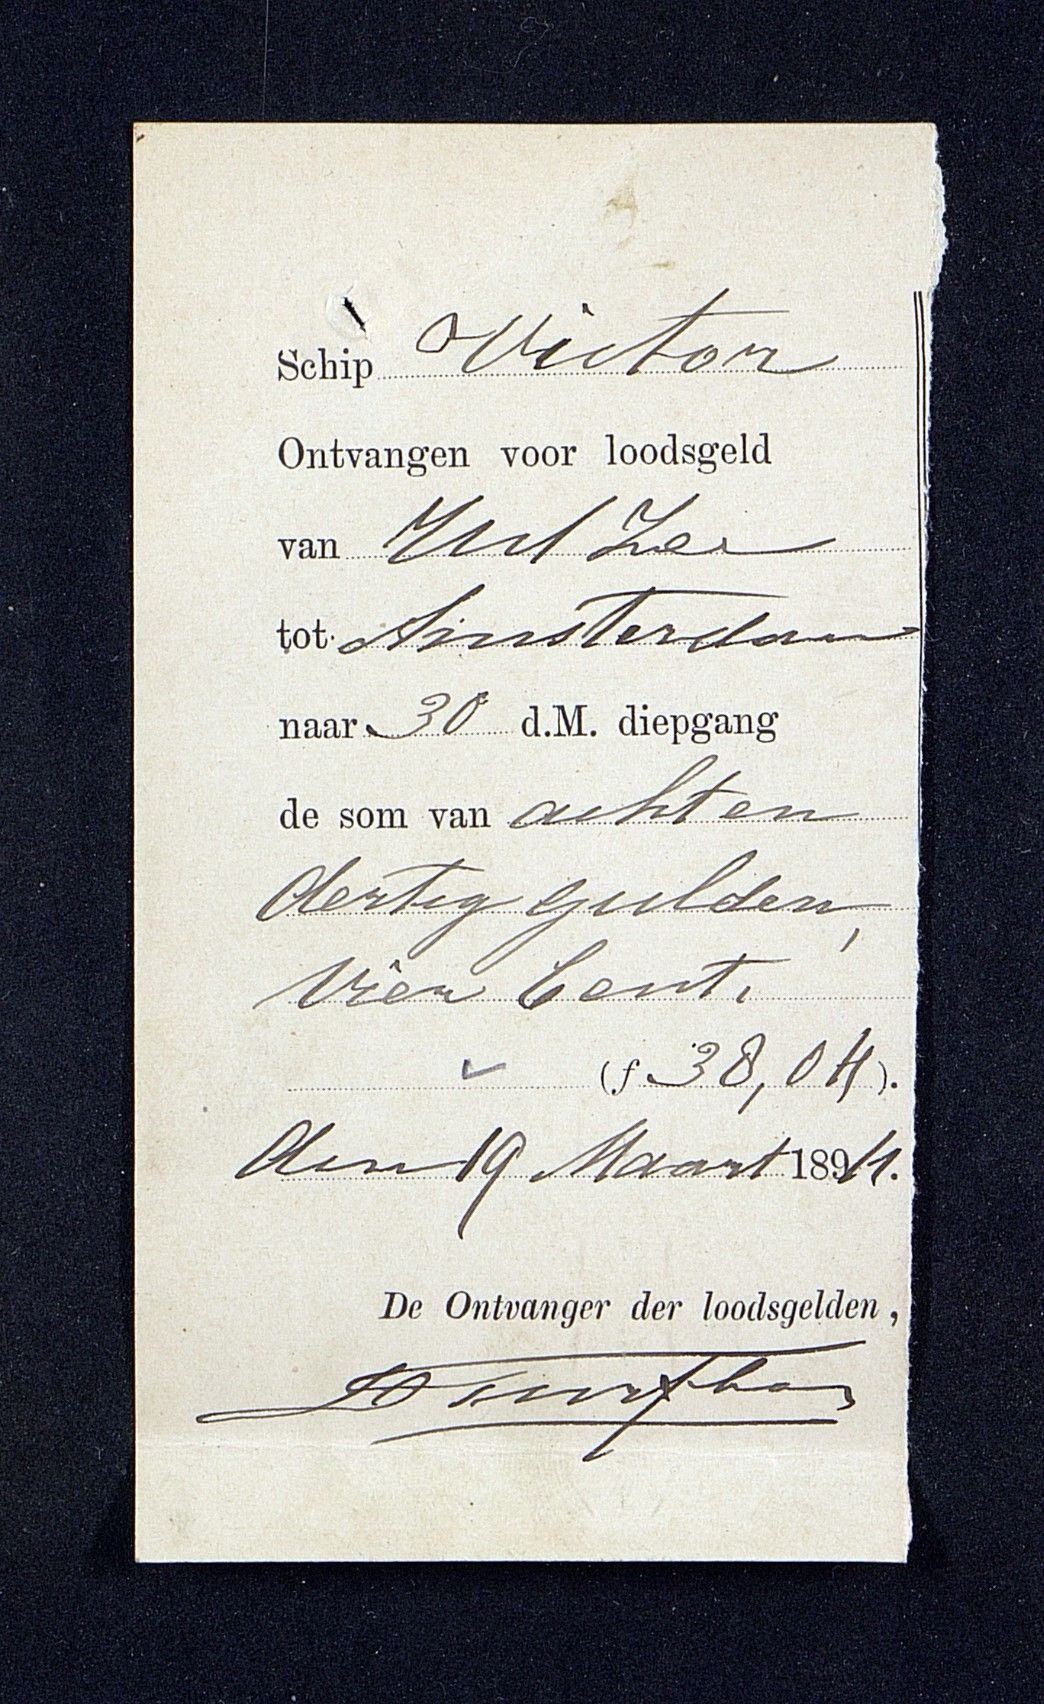 Schip Victor
Ontvangen voor loodsgeld
van Uit Zee
tot Amsterdam
naar 30 d.M. diepgang
de som van acht en
dertig gulden,
vier Cent.
(f 38,04).
den 19 Maart 1894.
De Ontvanger der loodsgelden,